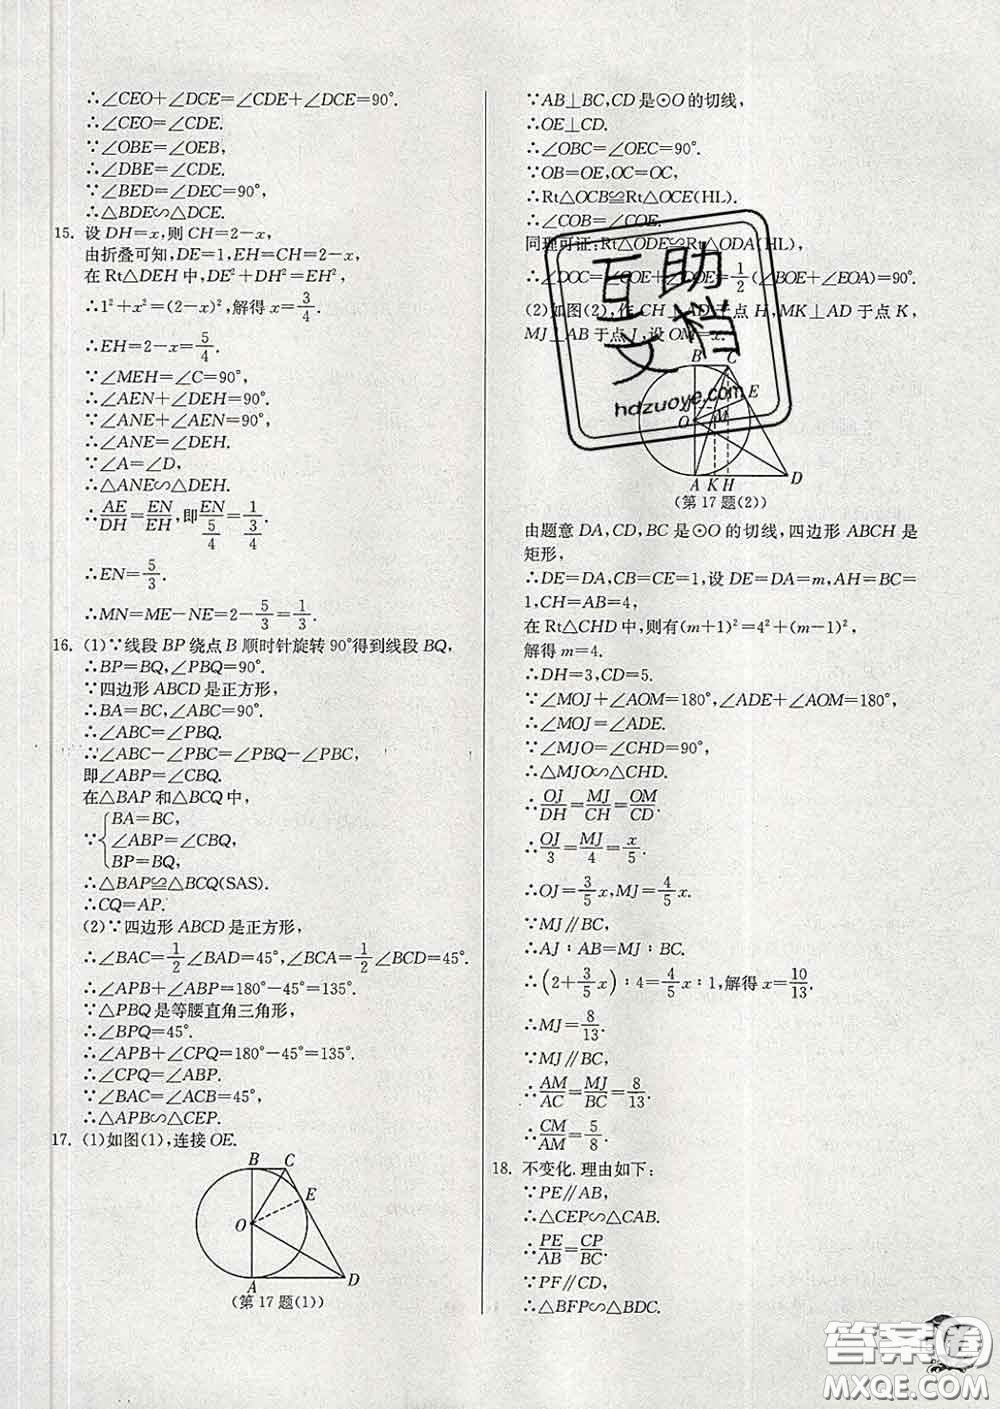 ∴∠CEO+∠DCE=∠CDE+∠DCE=90°.
∴∠CEO=∠CDE.
∵∠OBE=∠OEB,
∴∠DBE=∠CDE.
∵∠BED=∠DEC=90°,
∴△BDE∽△DCE.
15. 设 DH=x,则 CH=2-x,
由折叠可知,DE=1,EH=CH=2-x,
在 Rt△DEH 中,DE²+DH²=EH²,
∴1²+x²=(2-x)²,解得 x=3/4.
∴EH=2-x=5/4.
∵∠MEH=∠C=90°,
∴∠AEN+∠DEH=90°.
∵∠ANE+∠AEN=90°,
∴∠ANE=∠DEH.
∵∠A=∠D,
∴△ANE∽△DEH.
∴AE/DH=EN/EH,即EN/(5/4)=1/(3/4).
∴EN=5/3.
∴MN=ME-NE=2-5/3=1/3.
16. (1)∵线段 BP 绕点 B 顺时针旋转 90°得到线段 BQ,
∴BP=BQ,∠PBQ=90°.
∵四边形 ABCD 是正方形,
∴BA=BC,∠ABC=90°.
∴∠ABC=∠PBQ.
∴∠ABC-∠PBC=∠PBQ-∠PBC,
即∠ABP=∠CBQ.
在△BAP 和△BCQ 中,
BA=BC,
∵{∠ABP=∠CBQ,
BP=BQ,
∴△BAP≌△BCQ(SAS).
∴CQ=AP.
(2)∵四边形 ABCD 是正方形,
∴∠BAC=1/2∠BAD=45°,∠BCA=1/2∠BCD=45°.
∴∠APB+∠ABP=180°-45°=135°.
∵△PBQ 是等腰直角三角形,
∴∠BPQ=45°.
∴∠APB+∠CPQ=180°-45°=135°.
∴∠CPQ=∠ABP.
∵∠BAC=∠ACB=45°,
∴△APB∽△CEP.
17. (1)如图(1),连接 OE.
B C
E
O
A D
(第 17 题(1))
∵AB⊥BC,CD 是⊙O 的切线,
∴OE⊥CD.
∴∠OBC=∠OEC=90°.
∵OB=OE,OC=OC,
∴Rt△OCB≌Rt△OCE(HL).
∴∠COB=∠COE.
同理可证:Rt△ODE≌Rt△ODA(HL),
∴∠DOC=∠COE+∠DOE=1/2(∠BOE+∠EOA)=90°.
(2)如图(2),作 CH⊥AD 于点 H,MK⊥AD 于点 K,
MJ⊥AB 于点 J,设 OM=x.
互助
文档
hdzuoye.com
C
E
J
O M
A K H D
(第 17 题(2))
由题意 DA,CD,BC 是⊙O 的切线,四边形 ABCH 是
矩形,
∴DE=DA,CB=CE=1,设 DE=DA=m,AH=BC=
1,CH=AB=4,
在 Rt△CHD 中,则有(m+1)²=4²+(m-1)²,
解得 m=4.
∴DH=3,CD=5.
∵∠MOJ+∠AOM=180°,∠ADE+∠AOM=180°,
∴∠MOJ=∠ADE.
∵∠MJO=∠CHD=90°,
∴△MJO∽△CHD.
∴OJ/DH=MJ/CH=OM/CD.
∴OJ/3=MJ/4=x/5.
∴OJ=3/5x,MJ=4/5x.
∵MJ∥BC,
∴AJ∶AB=MJ∶BC.
∴(2+3/5x)∶4=4/5x∶1,解得 x=10/13.
∴MJ=8/13.
∵MJ∥BC,
∴AM/AC=MJ/BC=8/13.
∴CM/AM=5/8.
18. 不变化. 理由如下:
∵PE∥AB,
∴△CEP∽△CAB.
∴PE/AB=CP/BC.
∵PF∥CD,
∴△BFP∽△BDC.
答案圈
MXQE.COM